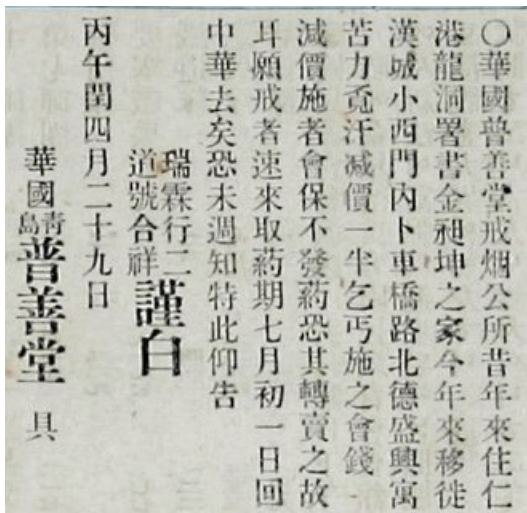 〇華國普善堂戒烟公所昔年來住仁
港龍洞署書金昶坤之家今年來移徙
漢城小西門內卜車橋路北德盛興寓
苦力覔汗减價一半乞丐施之會錢
减價施者會保不發葯恐其轉賣之故
耳願戒者速來取葯期七月初一日回
中華去矣恐未週知特此仰告
瑞霖行二
道號合祥
謹白
丙午閏四月二十九日
華國靑島普善堂 具